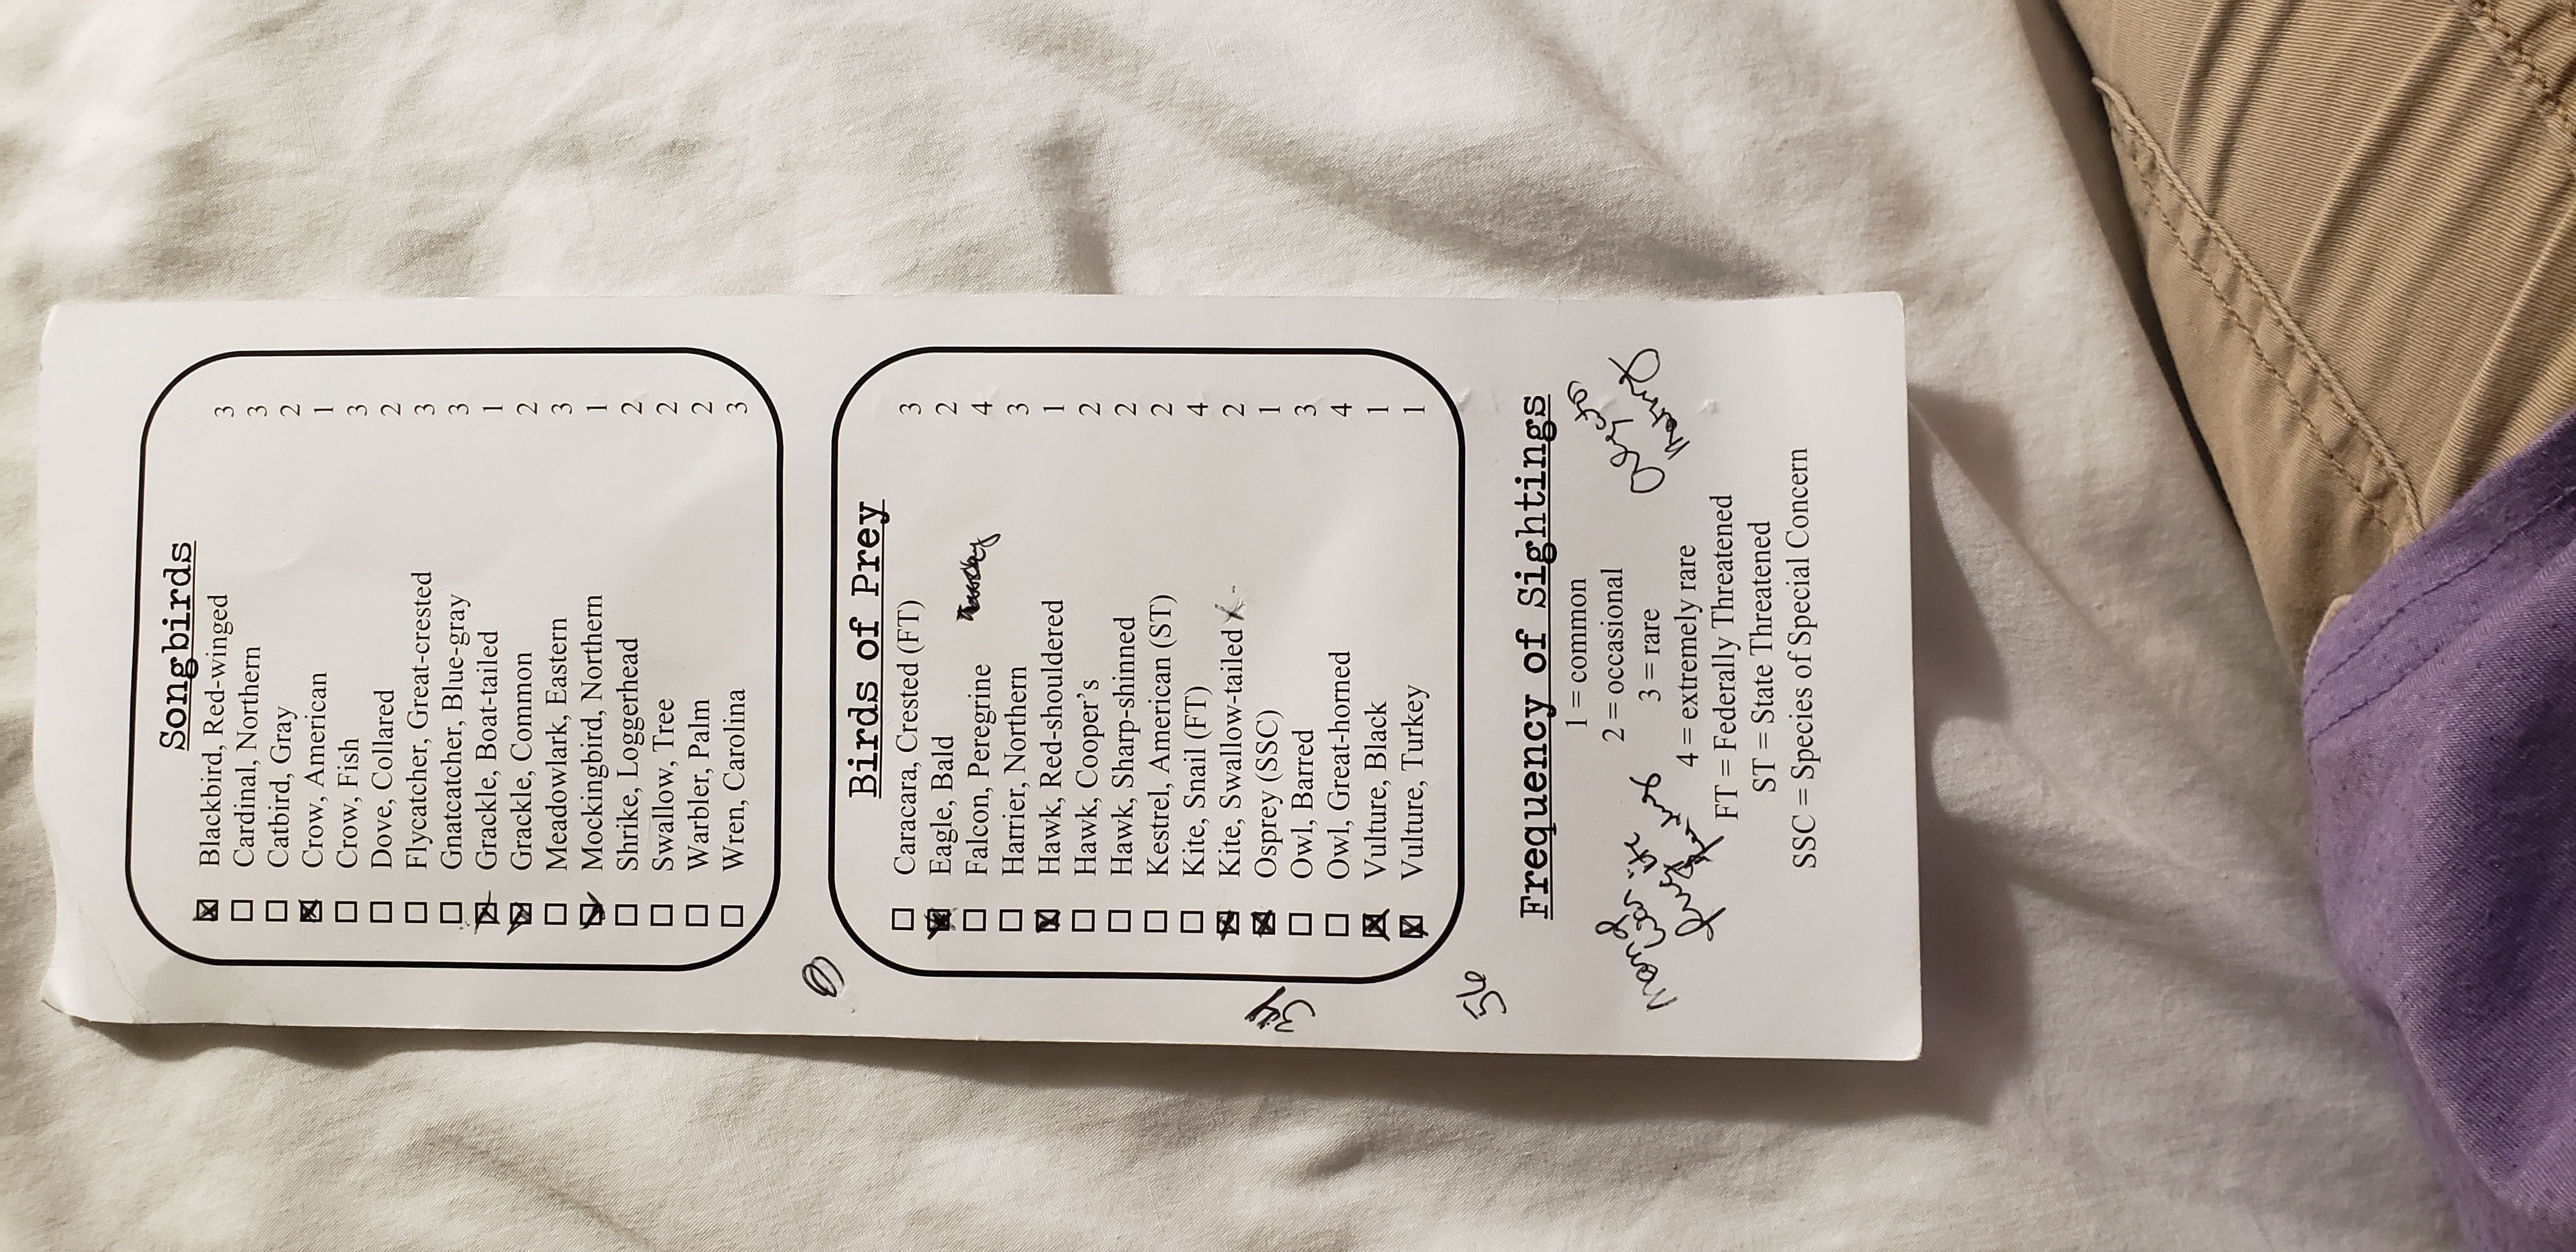 Songbirds
Blackbird, Red-winged 3
Cardinal, Northern 3
Catbird, Gray 2
Crow, American 1
Crow, Fish 3
Dove, Collared 2
Flycatcher, Great-crested 3
Gnatcatcher, Blue-gray 3
Grackle, Boat-tailed 1
Grackle, Common 2
Meadowlark, Eastern 3
Mockingbird, Northern 1
Shrike, Loggerhead 2
Swallow, Tree 2
Warbler, Palm 2
Wren, Carolina 3
Birds of Prey
Caracara, Crested (FT) 3
Eagle, Bald 2
Falcon, Peregrine 4
Harrier, Northern 3
Hawk, Red-shouldered 1
Hawk, Cooper's 2
Hawk, Sharp-shinned 2
Kestrel, American (ST) 2
Kite, Snail (FT) 4
Kite, Swallow-tailed 2
Osprey (SSC) 1
Owl, Barred 3
Owl, Great-horned 4
Vulture, Black 1
Vulture, Turkey 1
Frequency of Sightings
1 = common
2 = occasional
3 = rare
4 = extremely rare
FT = Federally Threatened
ST = State Threatened
SSC = Species of Special Concern